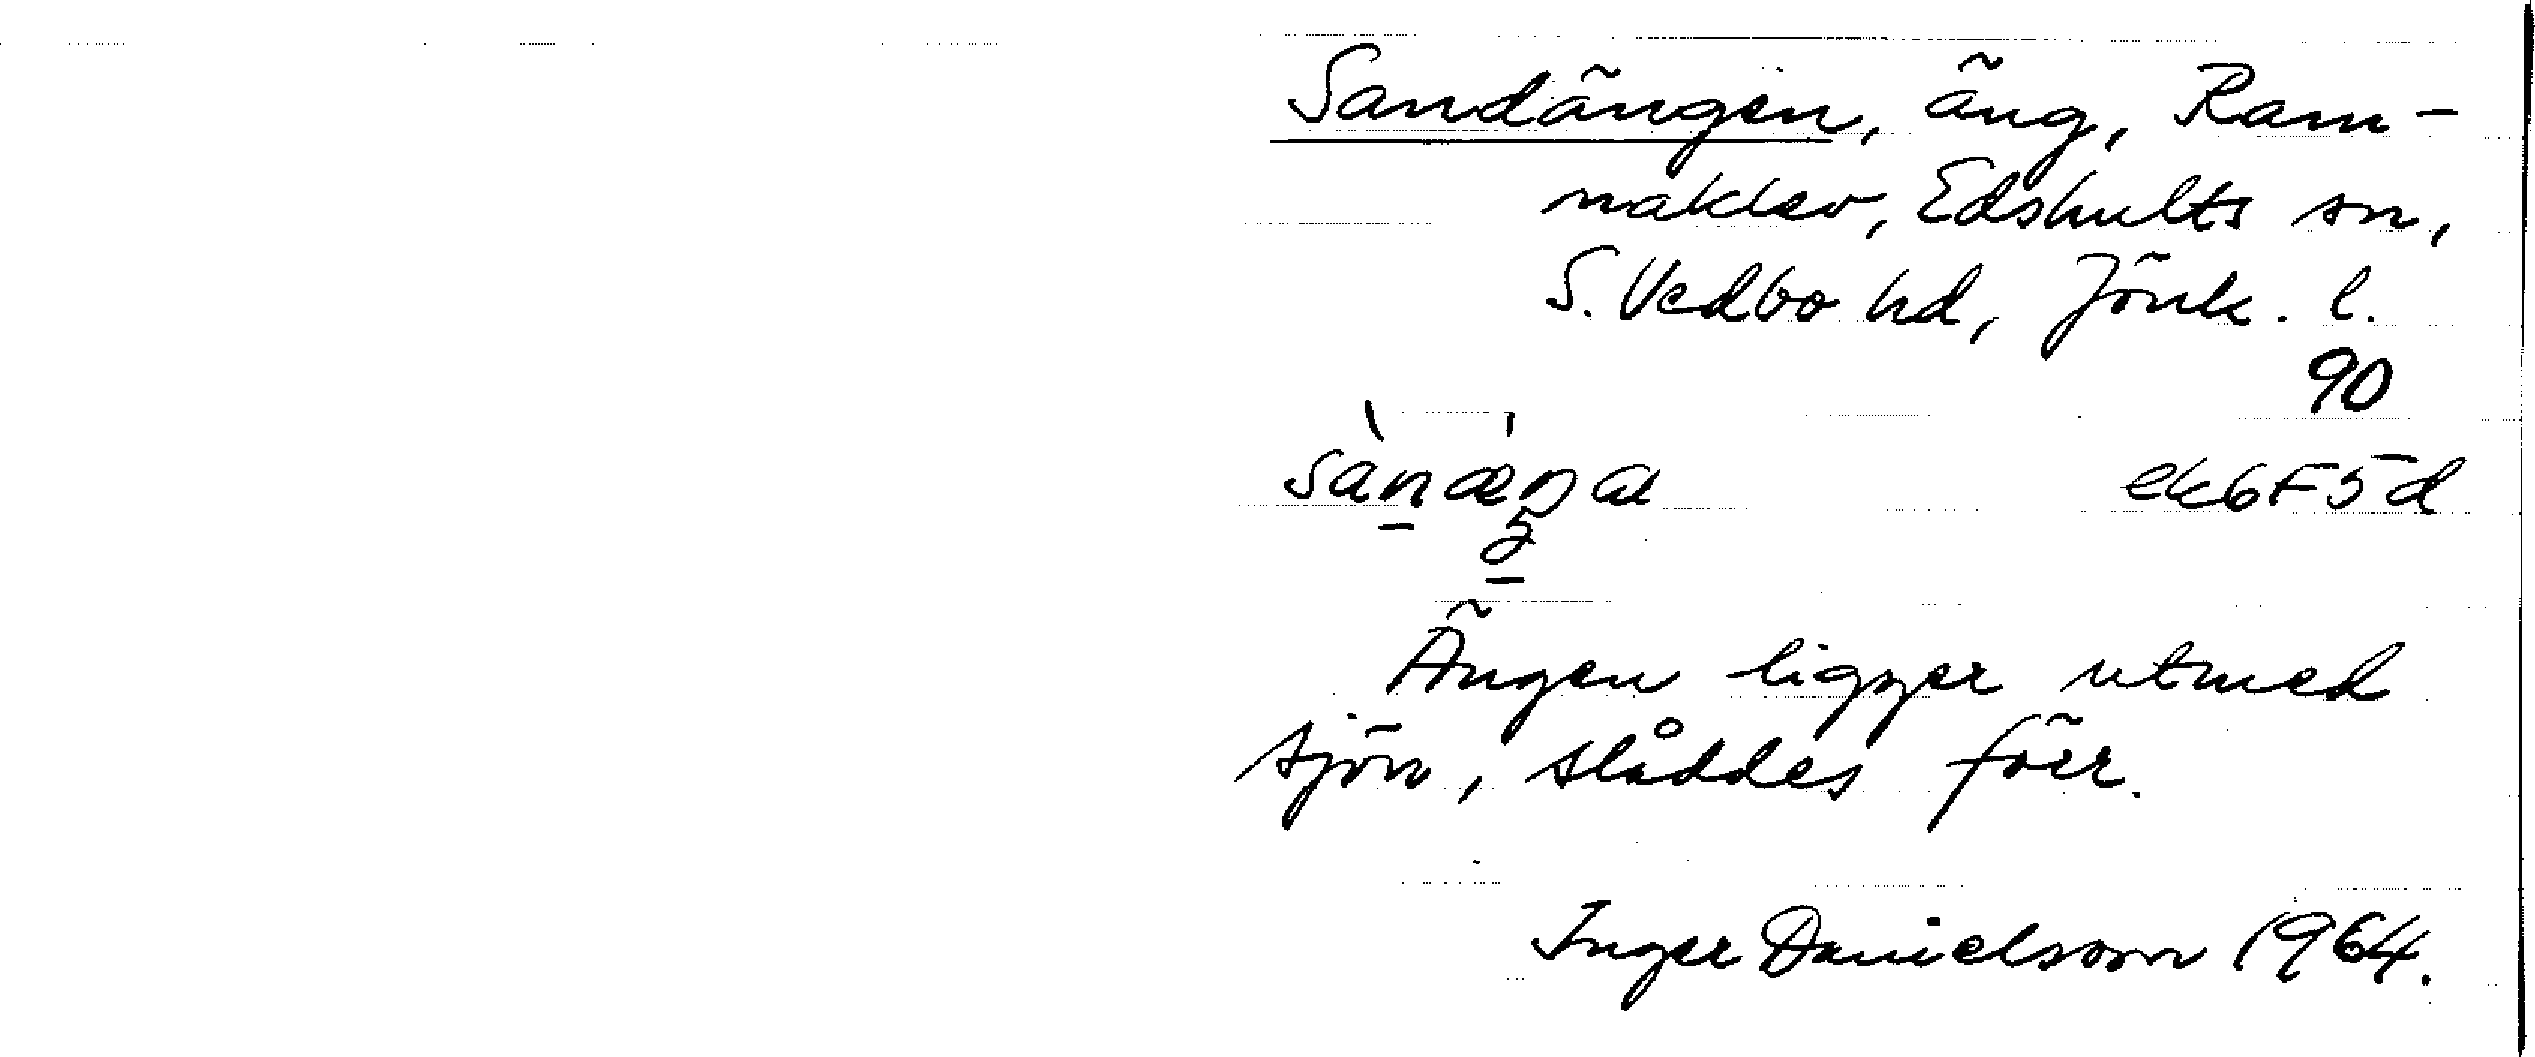 Sandängen, äng, Ram-
maklev, Edshults sn,
S. Vedbo hd, Jönk. l.
90
ek6F5d
Ängen ligger utmed
sjön, slåddes förr.
Inger Danielsson 1964.